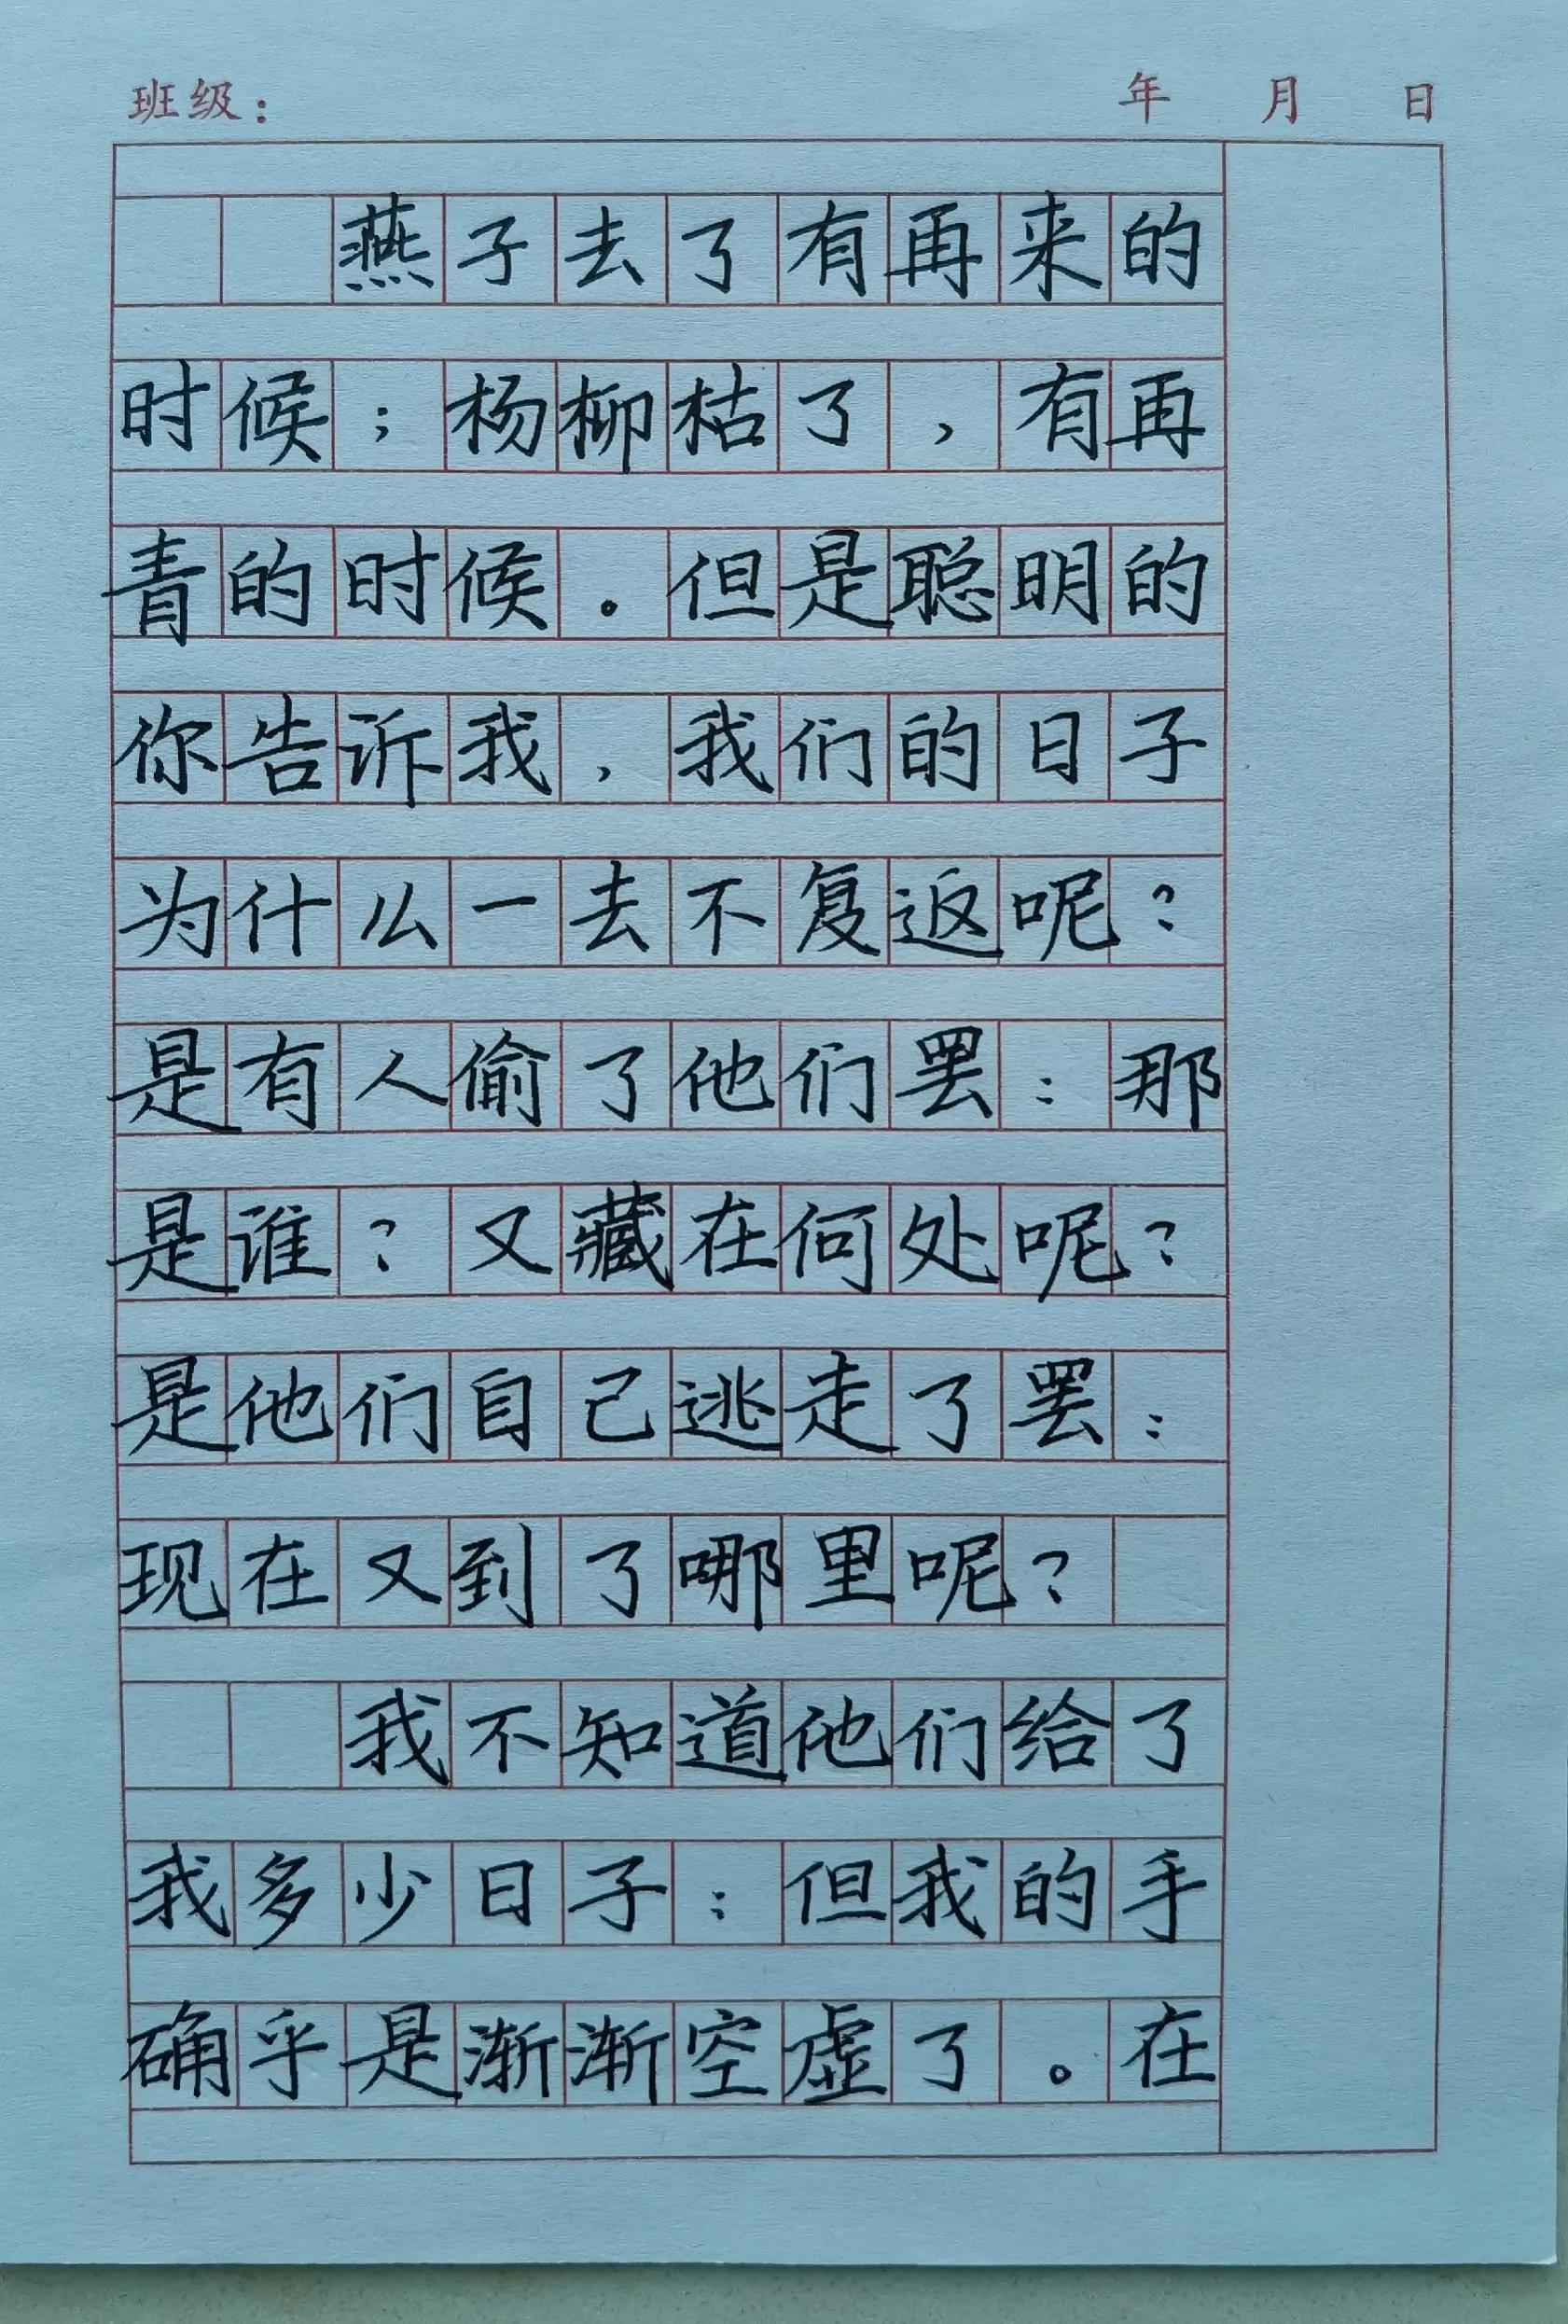 班级： 年 月 日
燕子去了有再来的
时候；杨柳枯了，有再
青的时候。但是聪明的
你告诉我，我们的日子
为什么一去不复返呢？
是有人偷了他们罢：那
是谁？又藏在何处呢？
是他们自己逃走了罢：
现在又到了哪里呢？
我不知道他们给了
我多少日子；但我的手
确乎是渐渐空虚了。在